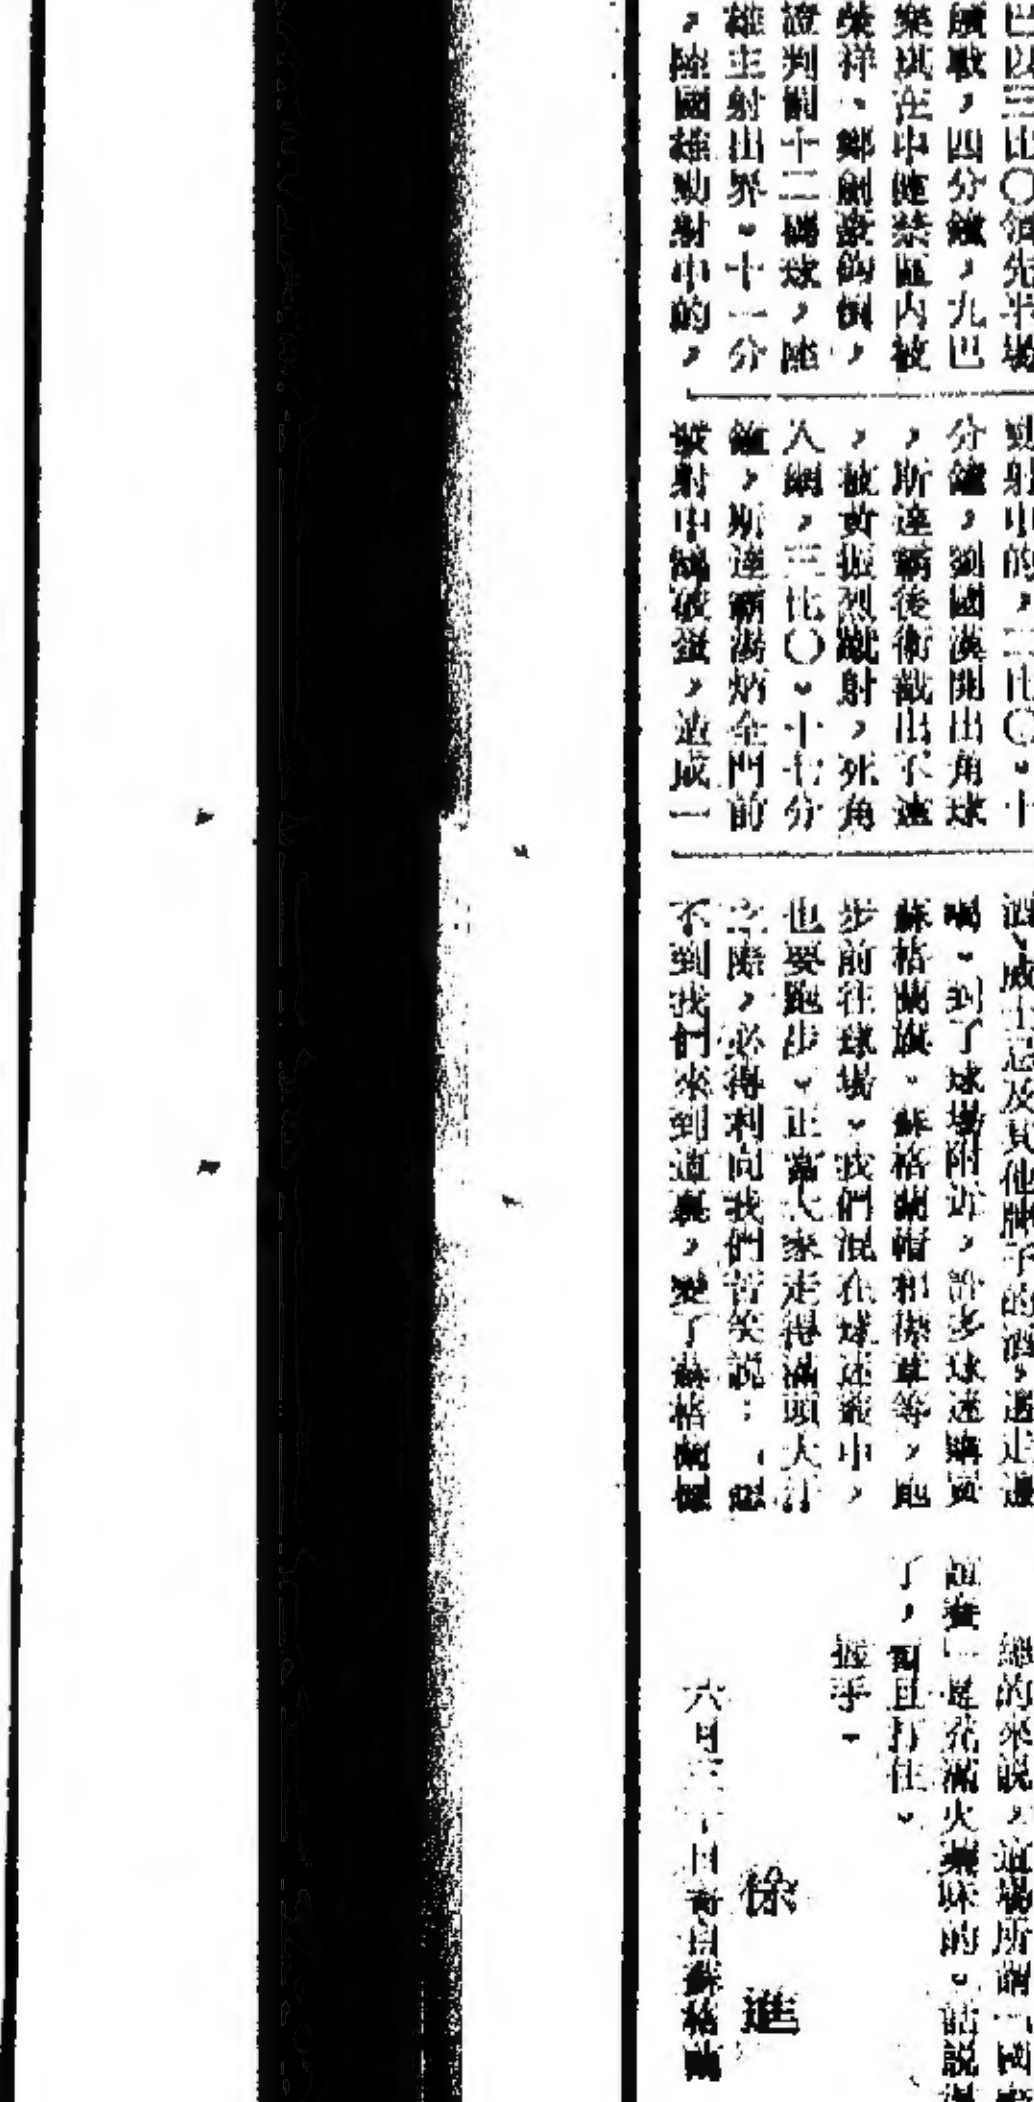 巴以三比〇領先半場
續戰，四分鐘，九巴
樂琪在中健禁區內被
榮祥、鄭創設鈎倒，
證判罰十二碼球，陸
雄主射出界。十一分
，陸國雄勁射中的，
勁射中的，二比〇。十
分鐘，劉國漢開出角球
，斯達霸後衛截出不遠
，被黃振烈蹴射，死角
入網，三比〇。十七分
鐘，斯達霸湯炳全門前
射中 破蛋，造成一
酒、威士忌及其他牌子的酒，邊走邊
喝。到了球場附近，許多球迷購買
蘇格蘭旗、蘇格蘭帽和襟章等，跑
步前往球場。我們混在球迷叢中，
也要跑步。正當大家走得滿頭大汗
之際，必得利向我們苦笑說：「想
不到我們來到這裏，變了蘇格蘭
總的來說，這場所謂「國
誼賽」是充滿火藥味的。話說
了，暫且打住。
握手。
徐進
六月三十日寄自蘇格蘭